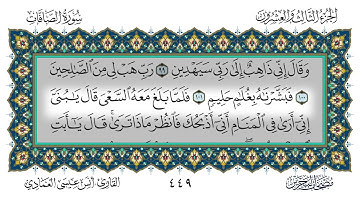 الجزء الثالث والعشرون
سورة الصافات
وَقَالَ إِنِّى ذَاهِبٌ إِلَىٰ رَبِّى سَيَهْدِينِ ٩٩ رَبِّ هَبْ لِى مِنَ ٱلصَّٰلِحِينَ
١٠٠ فَبَشَّرْنَٰهُ بِغُلَٰمٍ حَلِيمٍ ١٠١ فَلَمَّا بَلَغَ مَعَهُ ٱلسَّعْىَ قَالَ يَٰبُنَىَّ
إِنِّىٓ أَرَىٰ فِى ٱلْمَنَامِ أَنِّىٓ أَذْبَحُكَ فَٱنظُرْ مَاذَا تَرَىٰ ۚ قَالَ يَٰٓأَبَتِ
القارئ أنس عيسى العمادي
٤٤٩